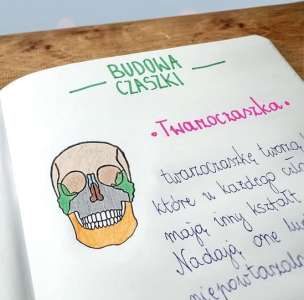 BUDOWA
CZASZKI
• Twarzoczaszka •
twarzoczaszkę tworzą
które u każdego
mają inny kształt
Nadają one
niepowtarzaln